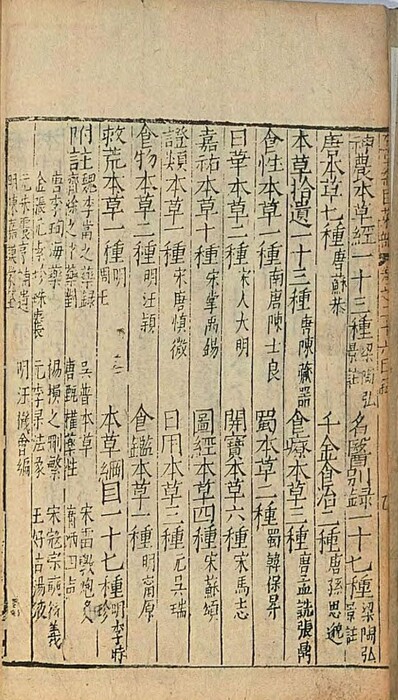 神農本草經一十三種 梁陶弘景註 名醫別録一十七種 梁陶弘景註
唐本草七種 唐蘇恭 千金食治二種 唐孫思邈
本草拾遺一十三種 唐陳藏器 食療本草三種 唐孟詵張鼎
食性本草一種 南唐陳士良 蜀本草二種 蜀韓保昇
日華本草二種 宋人大明 開寶本草六種 宋馬志
嘉祐本草十種 宋掌禹錫 圖經本草四種 宋蘇頌
證類本草一種 宋唐慎微 日用本草三種 元吳瑞
食物本草二種 明汪穎 食鑑本草一種 明甯原
救荒本草一種 明周王 本草綱目一十七種 明李時珍
附註 魏李當之藥録 吳普本草 宋雷斅炮炙
齊徐之才藥對 唐甄權藥性
唐李珣海藥 楊損之刪繁 宋寇宗奭衍義
金張元素珍珠囊 元李杲法象 王好古湯液
元朱震亨補遺 明汪機會編
明陳嘉謨蒙筌